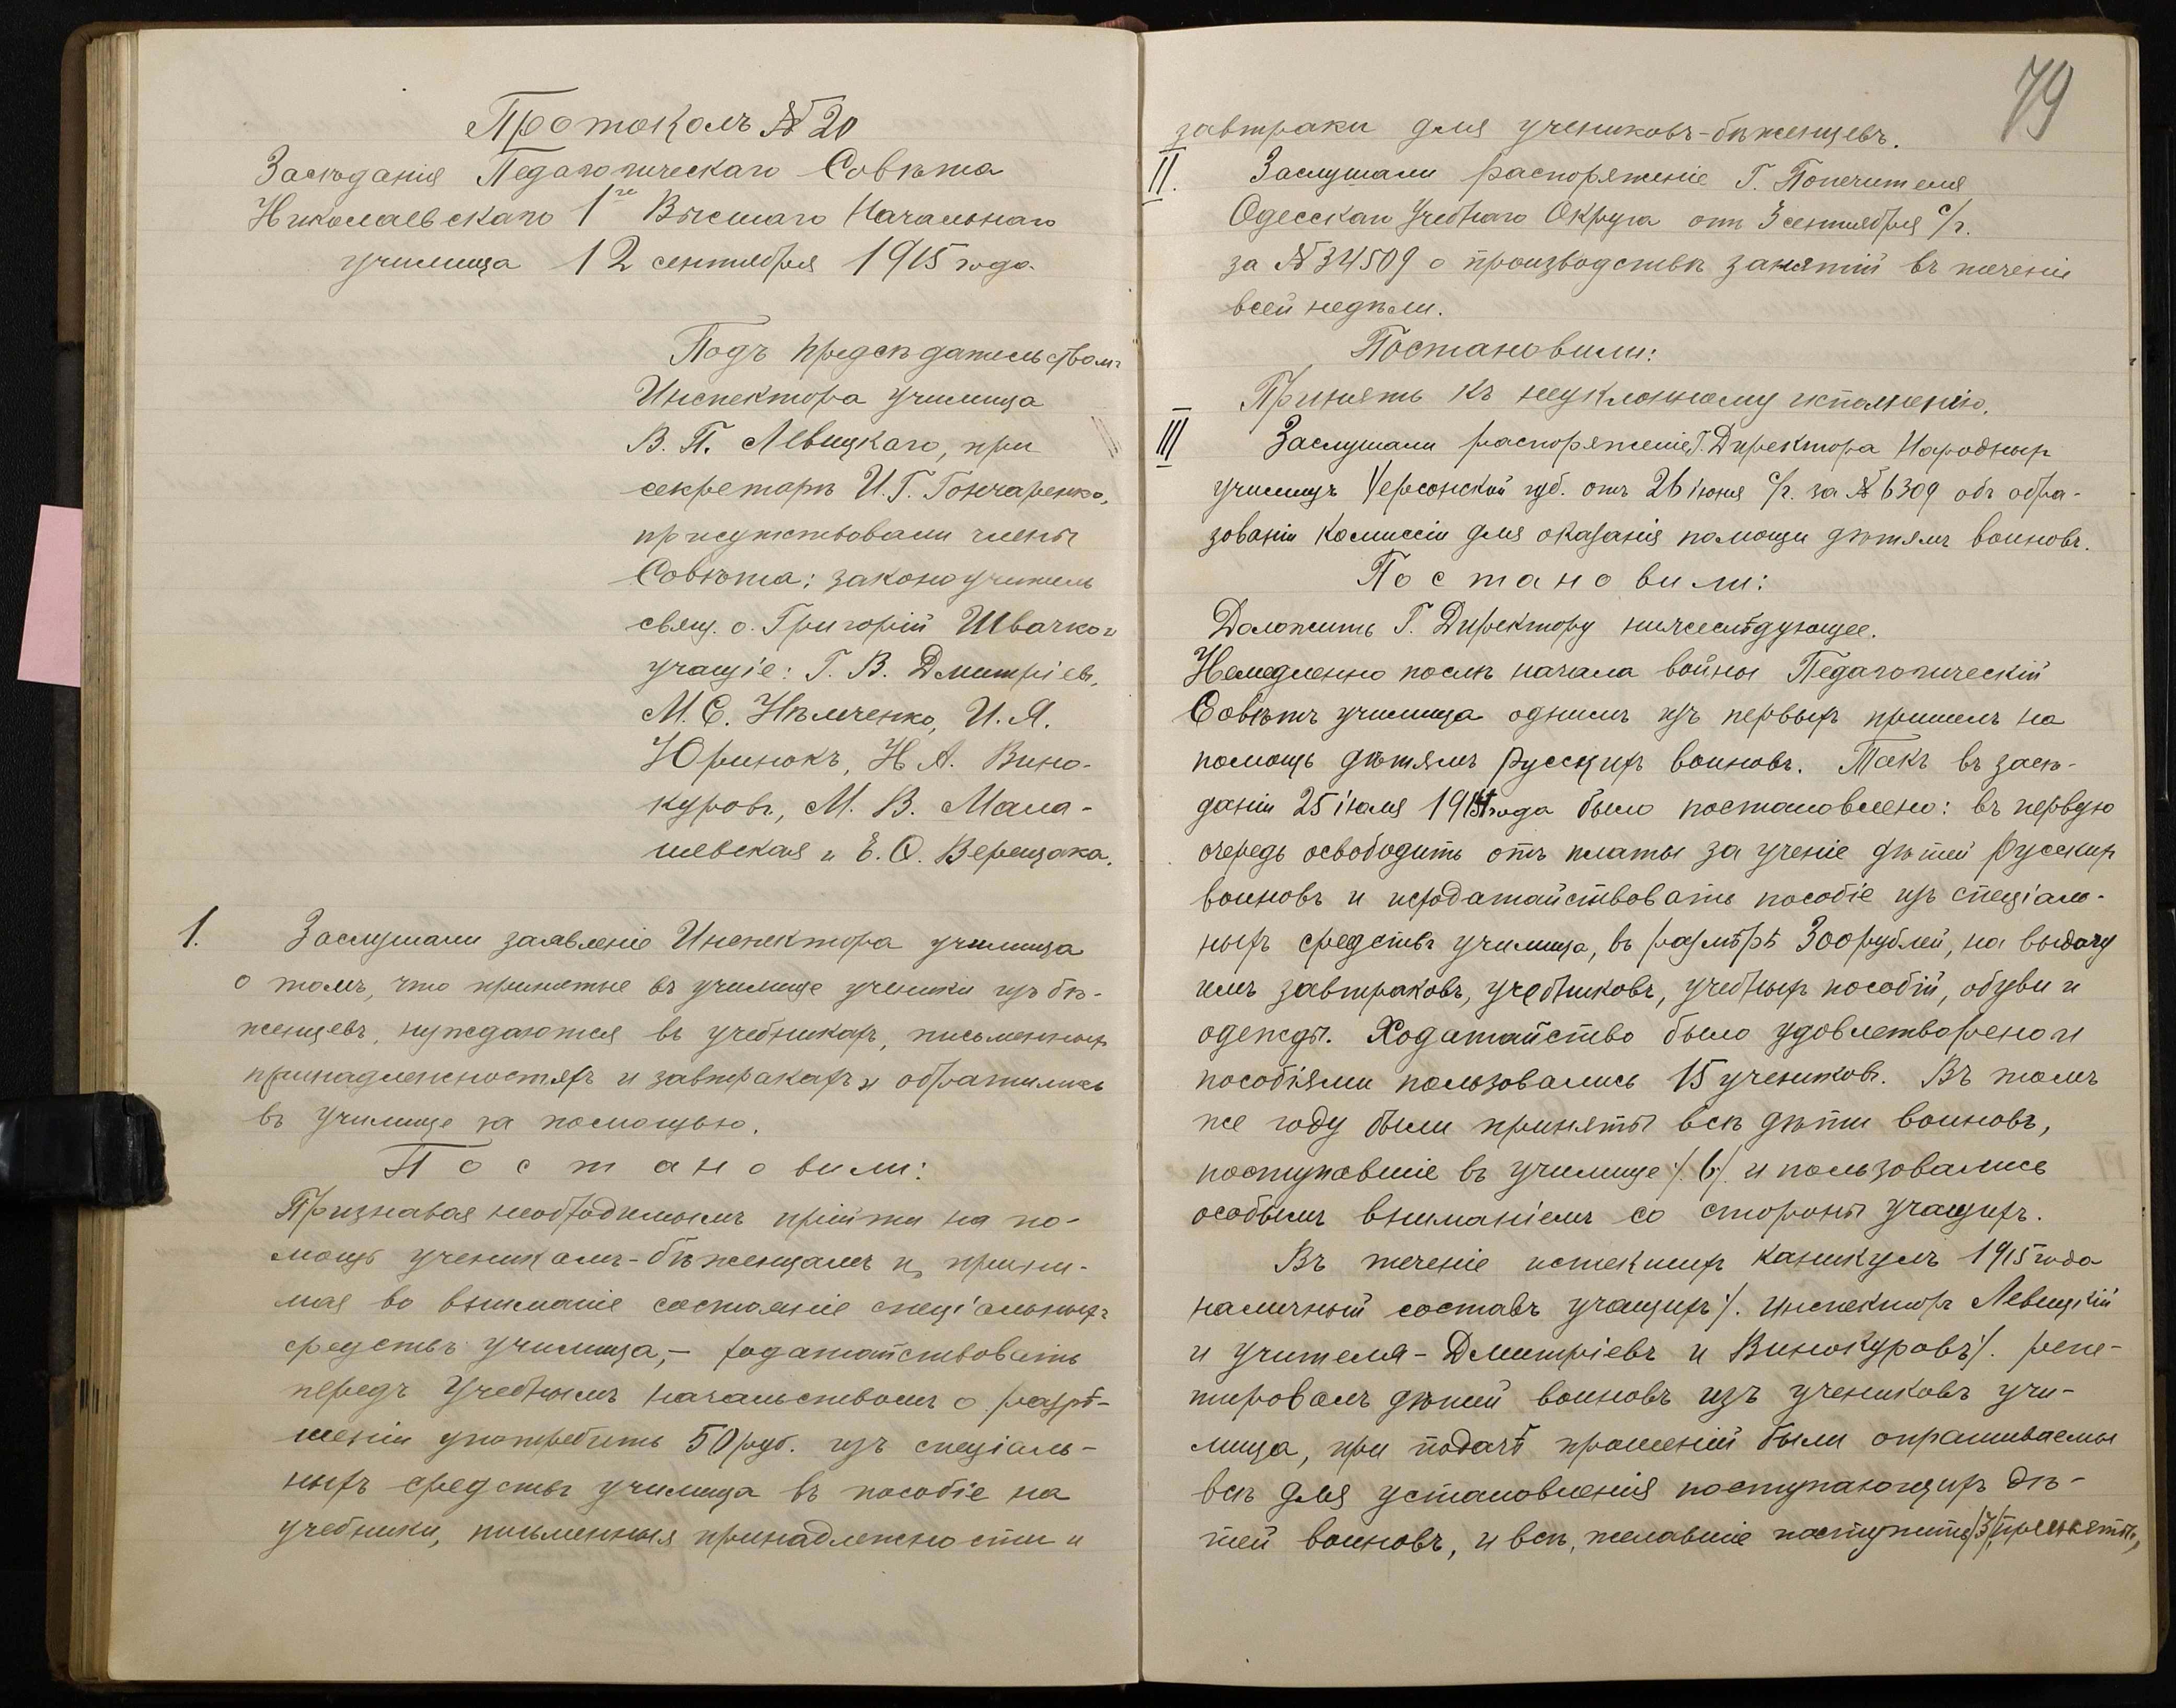 Протоколъ № 20
Засѣданія Педагогическаго Совѣта
Николаевскаго 1го Высшаго Начальнаго
училища 12 сентября 1915 года.
Подъ предсѣдательствомъ
Инспектора училища
В. П. Левицкаго, при
секретарѣ И. Г. Гончаренко,
присутствовали члены
Совѣта: законоучитель
свящ. о. Григорій Швачко и
учащіе: Г. В. Дмитріевъ,
М. Е. Нѣмченко, И. Я.
Юринокъ, Н. А. Вино-
куровъ, М. В. Мала-
шевская и Е. О. Верещака.
1. Заслушали заявленіе Инспектора училища
о томъ, что принятые въ училище ученики изъ бѣ-
женцевъ, нуждаются въ учебникахъ, письменныхъ
принадлежностяхъ и завтракахъ и обратились
въ училище за помощью.
Постановили:
Признавая необходимымъ прійти на по-
мощь ученикамъ-бѣженцамъ и, прини-
мая во вниманіе состояніе спеціальныхъ
средствъ училища, – ходатайствовать
передъ Учебнымъ Начальствомъ о разрѣ-
шеніи употребить 50 руб. изъ спеціаль-
ныхъ средствъ училища въ пособіе на
учебники, письменныя принадлежности и
79
завтраки для учениковъ-бѣженцевъ.
II. Заслушали распоряженіе Г. Попечителя
Одесскаго Учебнаго Округа отъ 3 сентября с/г.
за № 34509 о производствѣ занятій въ теченіе
всей недѣли.
Постановили:
Принять къ неуклонному исполненію.
III Заслушали распоряженіе Г. Директора Народныхъ
училищъ Херсонской губ. отъ 26 іюня с/г. за № 6309 объ обра-
зованіи Комиссіи для оказанія помощи дѣтямъ воиновъ.
Постановили:
Доложить Г. Директору нижеслѣдующее.
Немедленно послѣ начала войны Педагогическій
Совѣтъ училища однимъ изъ первыхъ пришелъ на
помощь дѣтямъ русскихъ воиновъ. Такъ въ засѣ-
даніи 25 іюля 1914 года было постановлено: въ первую
очередь освободить отъ платы за ученіе дѣтей русскихъ
воиновъ и исходатайствовать пособіе изъ спеціаль-
ныхъ средствъ училища, въ размѣрѣ 300 рублей, на выдачу
имъ завтраковъ, учебниковъ, учебныхъ пособій, обуви и
одежды. Ходатайство было удовлетворено и
пособіями пользовались 15 учениковъ. Въ томъ
же году были приняты всѣ дѣти воиновъ,
поступавшіе въ училище /. 6 /. и пользовались
особымъ вниманіемъ со стороны учащихъ.
Въ теченіе истекшихъ каникулъ 1915 года
наличный составъ учащихъ /. инспекторъ Левицкій
и учителя – Дмитріевъ и Винокуровъ /. репе-
тировалъ дѣтей воиновъ изъ учениковъ учи-
лища, при подачѣ прошеній были опрашиваемы
всѣ для установленія поступающихъ дѣ-
тей воиновъ, и всѣ, желавшіе поступить /3/, приняты,